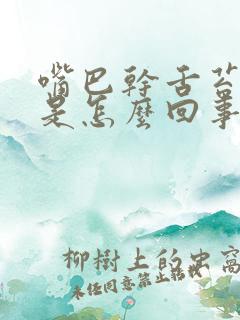 嘴巴幹舌苔
是怎麼回事
柳樹上的史窩
未经同意禁止转载